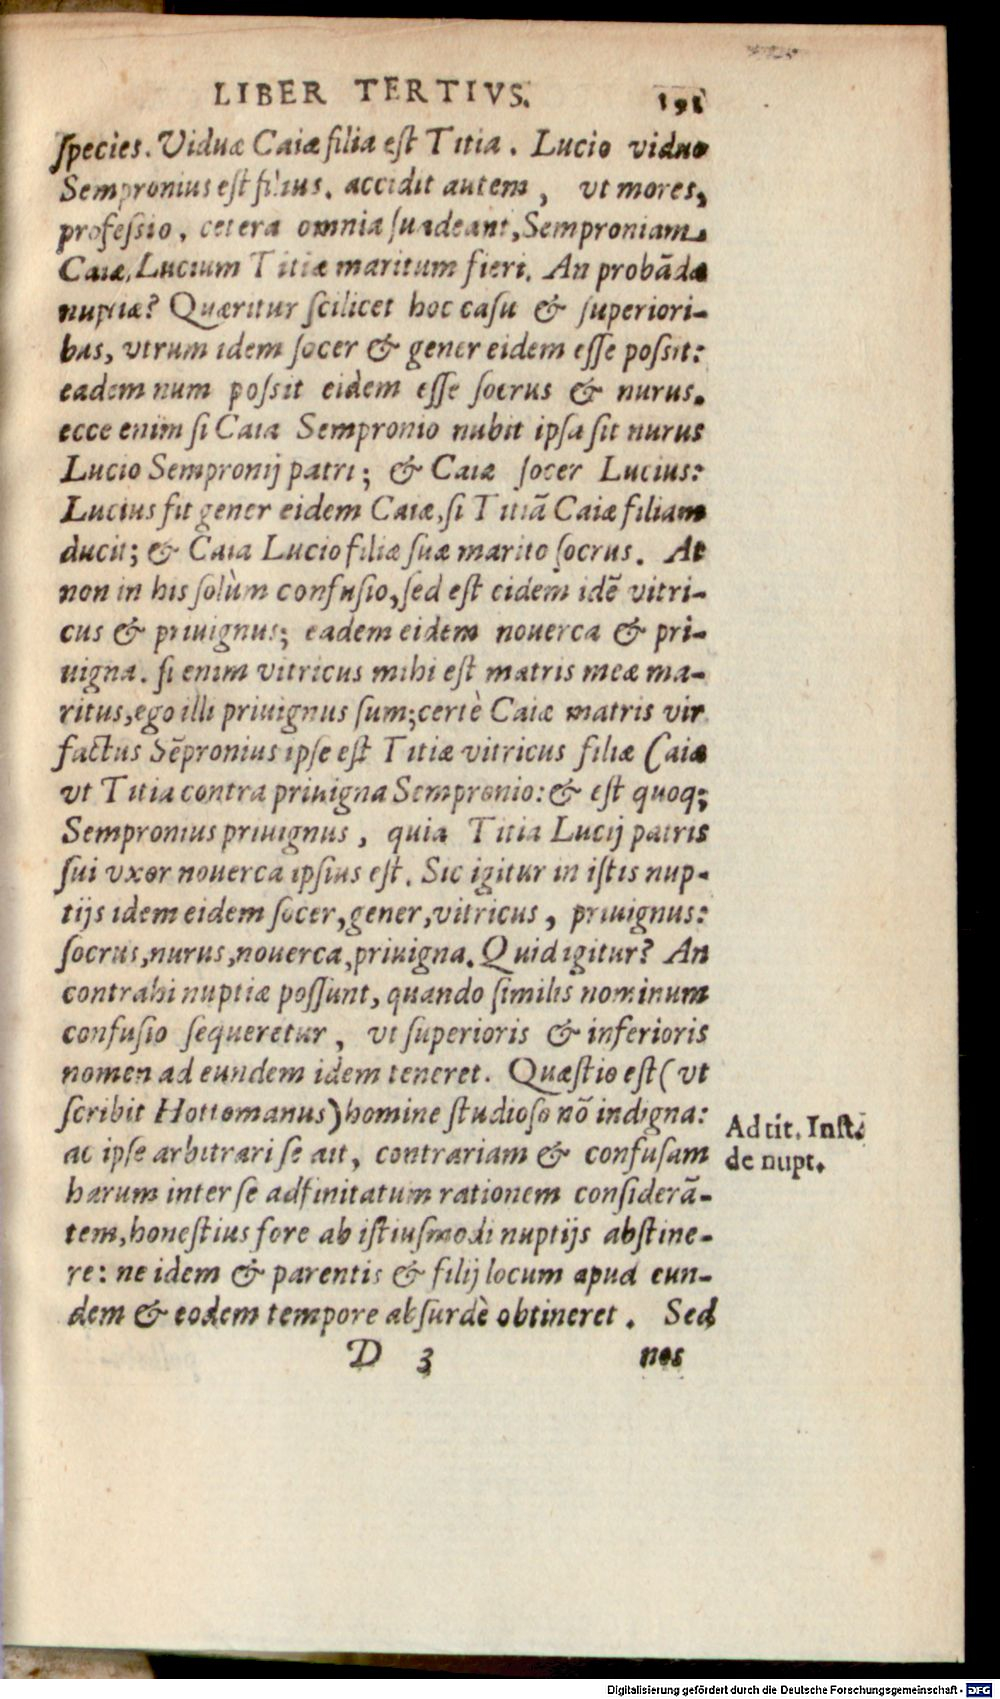 LIBER TERTIVS. 191
species. Viduæ Caiæ filia est Titia. Lucio viduo
Sempronius est filius. accidit autem, vt mores,
professio, cetera omnia suadeant, Semproniam
Caiæ, Lucium Titiæ maritum fieri. An probãdæ
nuptiæ? Quæritur scilicet hoc casu & superiori-
bus, vtrum idem socer & gener eidem esse possit:
eadem num possit eidem esse socrus & nurus.
ecce enim si Caia Sempronio nubit ipsa fit nurus
Lucio Sempronij patri; & Caiæ socer Lucius:
Lucius fit gener eidem Caiæ, si Titiã Caiæ filiam
ducit; & Caia Lucio filiæ suæ marito socrus. At
non in his solùm confusio, sed est eidem idẽ vitri-
cus & priuignus; eadem eidem nouerca & pri-
uigna. si enim vitricus mihi est matris meæ ma-
ritus, ego illi priuignus sum; certè Caiæ matris vir
factus Sẽpronius ipse est Titiæ vitricus filiæ Caiæ
vt Titia contra priuigna Sempronio: & est quoq;
Sempronius priuignus, quia Titia Lucij patris
sui vxor nouerca ipsius est. Sic igitur in istis nup-
tijs idem eidem socer, gener, vitricus, priuignus:
socrus, nurus, nouerca, priuigna. Quid igitur? An
contrahi nuptiæ possunt, quando similis nominum
confusio sequeretur, vt superioris & inferioris
nomen ad eundem idem teneret. Quæstio est (vt
scribit Hottomanus) homine studioso nõ indigna:
ac ipse arbitrari se ait, contrariam & confusam
harum inter se adfinitatum rationem considerã-
tem, honestius fore ab istiusmodi nuptijs abstine-
re: ne idem & parentis & filij locum apud eun-
dem & eodem tempore absurdè obtineret. Sed
D 3 nos
Ad tit. Inst.
de nupt.
Digitalisierung gefördert durch die Deutsche Forschungsgemeinschaft - DFG